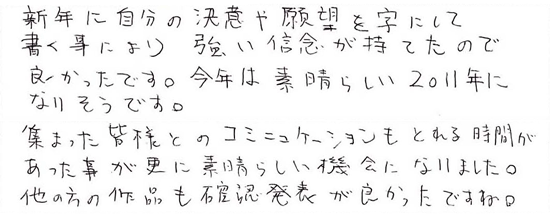 新年に自分の決意や願望を字にして
書く事により 強い信念が持てたので
良かったです。今年は素晴らしい2011年に
なりそうです。
集まった皆様とのコミニュケーションもとれる時間が
あった事が更に素晴らしい機会になりました。
他の方の作品も確認発表が良かったですね。